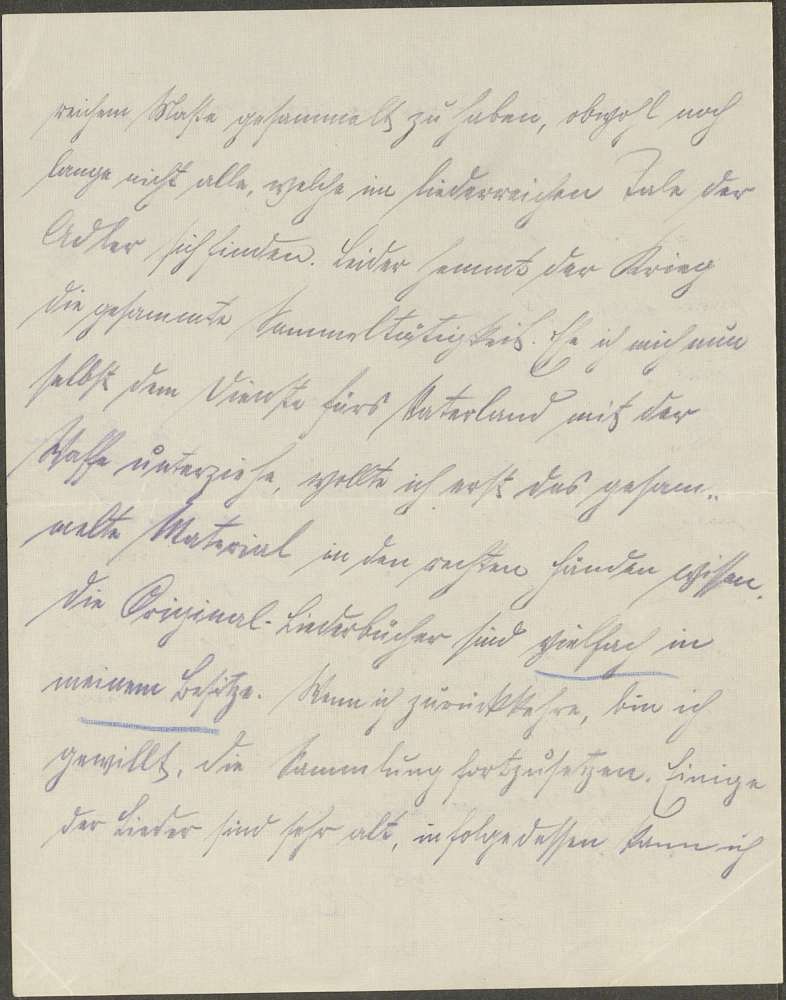 reichem Maße gesammelt zu haben, obwohl noch
lange nicht alle, welche im liederreichen Tale der
Adler sich finden. Leider hemmt der Krieg
die gesammte Sammeltätigkeit. Ehe ich mich nun
selbst dem Dienste fürs Vaterland mit der
Waffe unterziehe, wollte ich erst das gesam-
melte Material in den rechten Händen wissen.
Die Original-Liederbücher sind vielfach in
meinem Besitze. Wenn ich zurückkehre, bin ich
gewillt, die Sammlung fortzusetzen. Einige
der Lieder sind sehr alt, infolgedessen kann ich